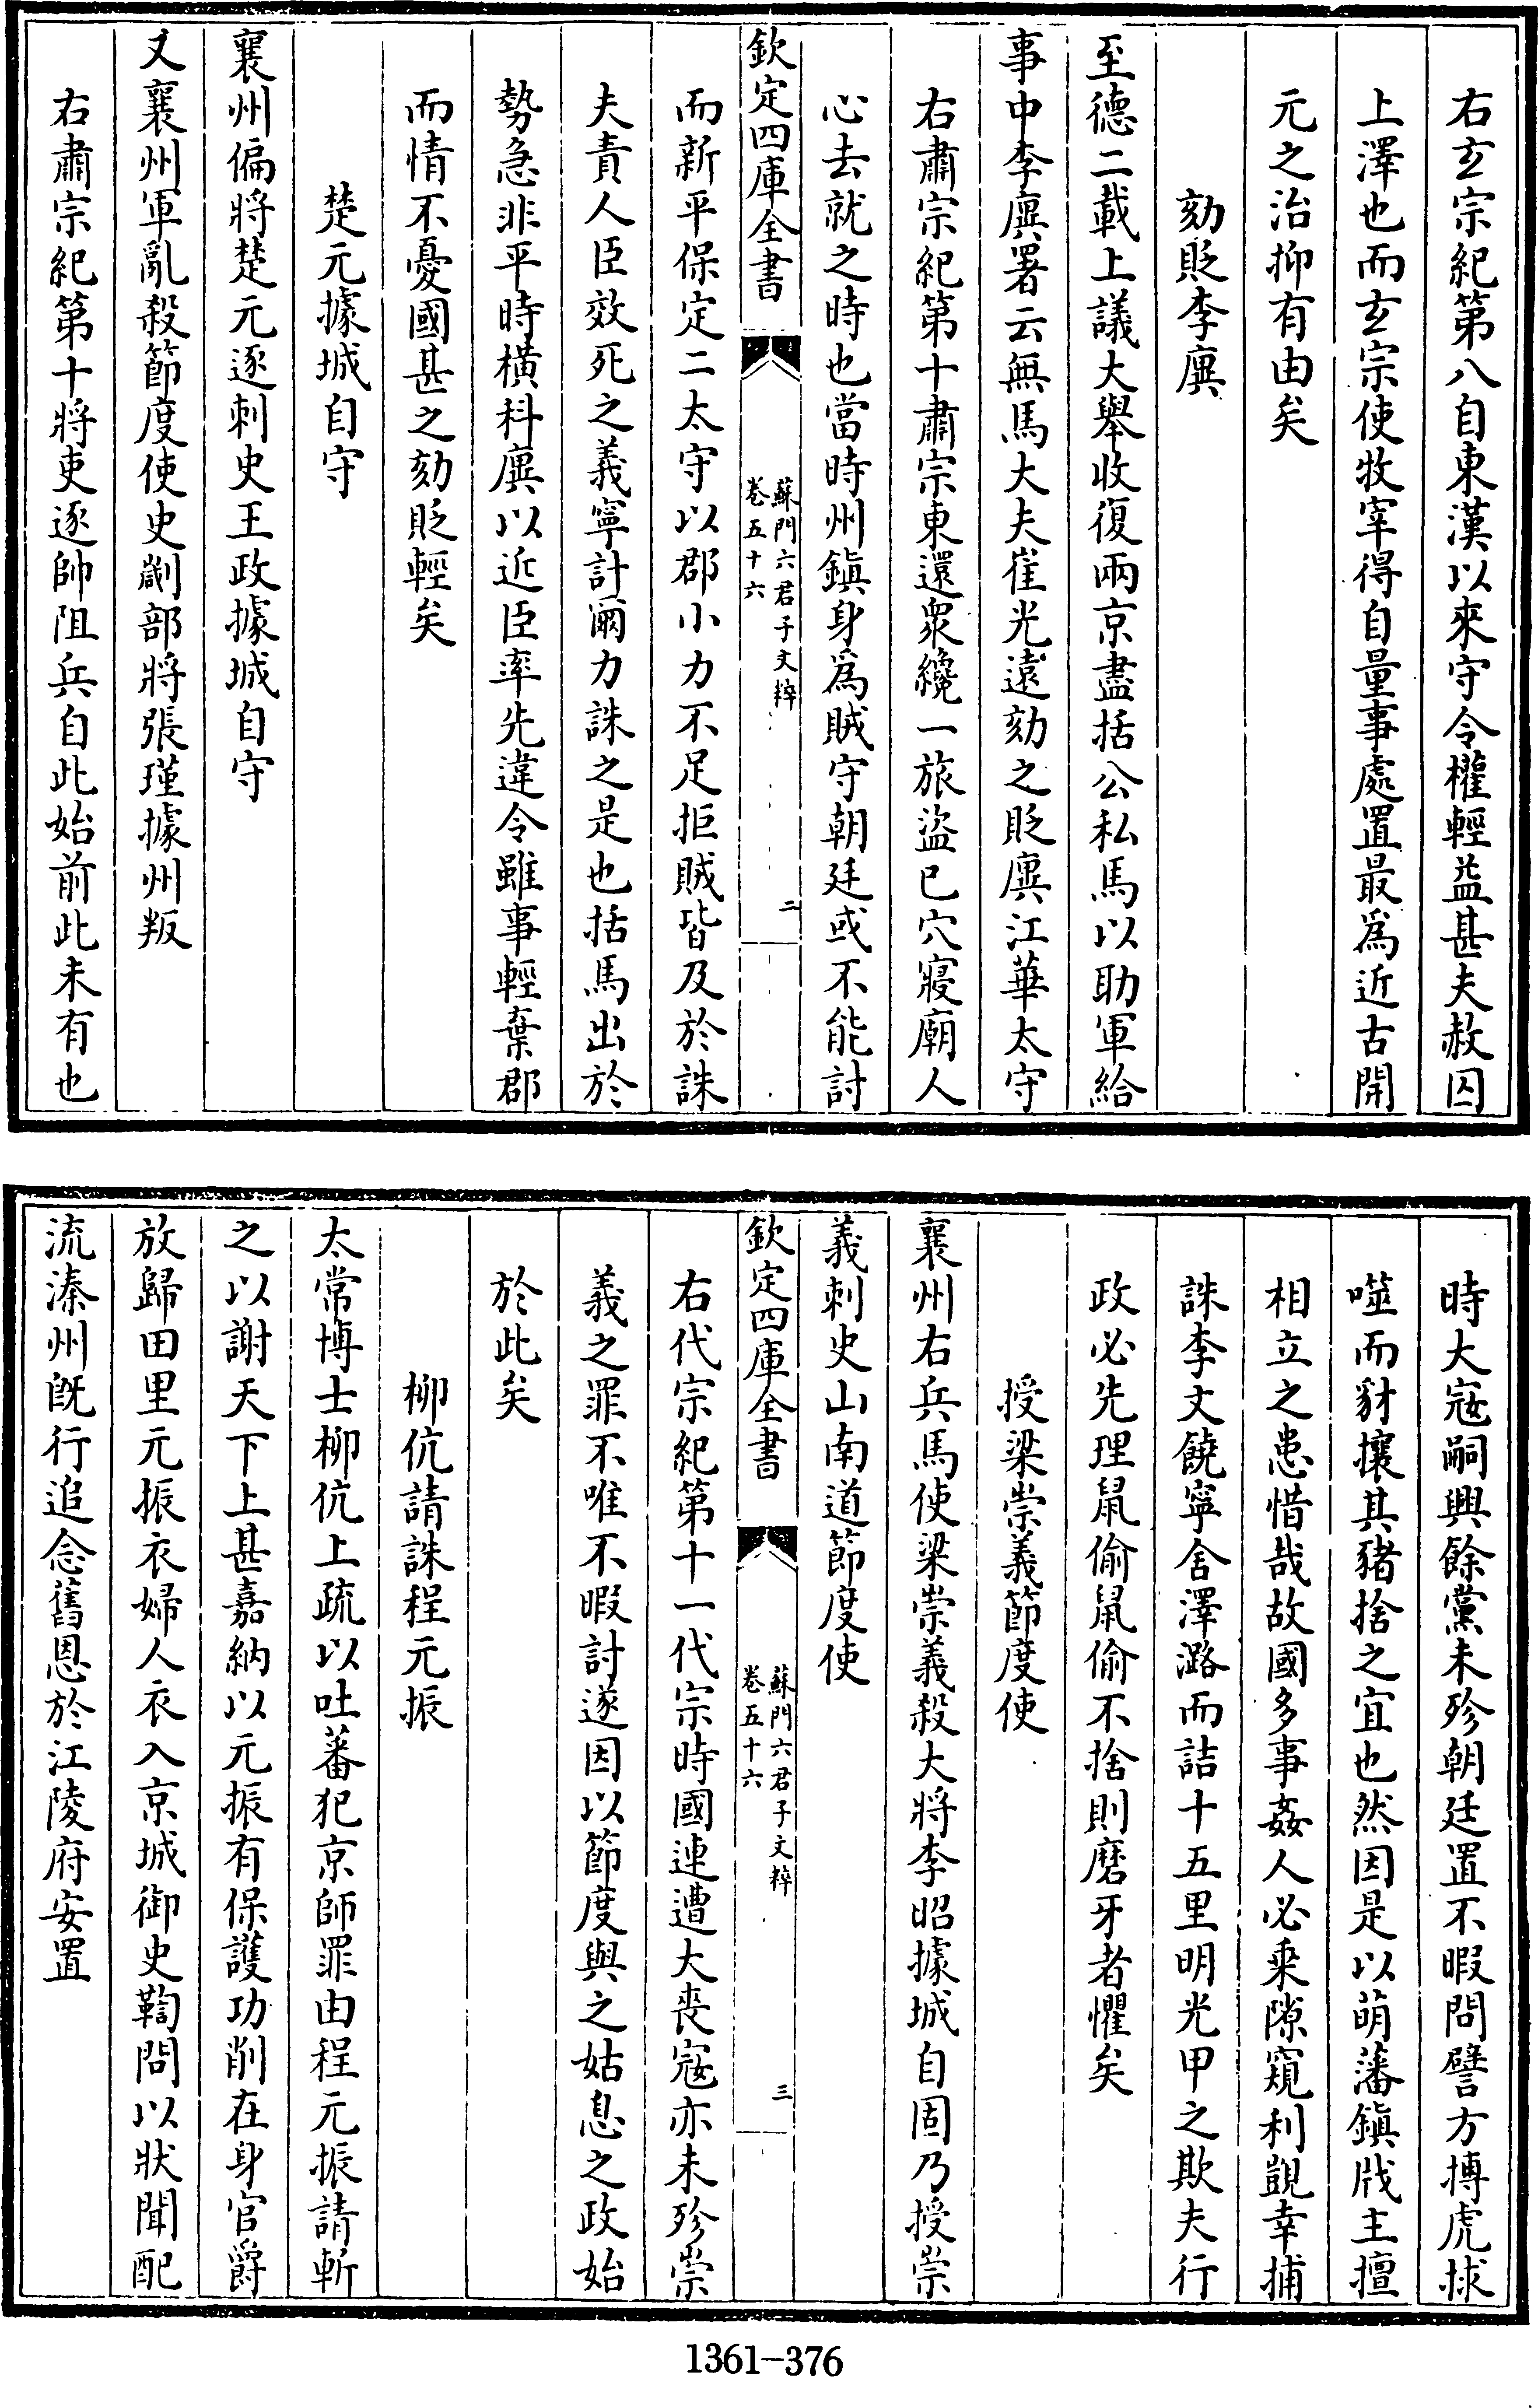 右玄宗紀第八自東漢以來守令權輕益甚夫赦囚
上澤也而玄宗使牧宰得自量事處置最為近古開
元之治抑有由矣
劾貶李廙
至德二載上議大舉收復兩京盡括公私馬以助軍給
事中李廙署云無馬大夫崔光遠劾之貶廙江華太守
右肅宗紀第十肅宗東還衆纔一旅盜已穴寢廟人
心去就之時也當時州鎮身為賊守朝廷或不能討
欽定四庫全書
蘇門六君子文粹
卷五十六
二
而新平保定二太守以郡小力不足拒賊皆及於誅
夫責人臣效死之義寧計爾力誅之是也括馬出於
勢急非平時橫科廙以近臣率先違令雖事輕棄郡
而情不憂國甚之劾貶輕矣
楚元據城自守
襄州偏將楚元逐刺史王政據城自守
又襄州軍亂殺節度使史劌部將張瑾據州叛
右肅宗紀第十將吏逐帥阻兵自此始前此未有也
時大寇嗣興餘黨未殄朝廷置不暇問譬方搏虎捄
噬而豺攘其豬捨之宜也然因是以萌藩鎮戕主擅
相立之患惜哉故國多事姦人必乘隙窺利覬幸捕
誅李文饒寧舍澤潞而詰十五里明光甲之欺夫行
政必先理鼠偷鼠偷不捨則磨牙者懼矣
授梁崇義節度使
襄州右兵馬使梁崇義殺大將李昭據城自固乃授崇
義刺史山南道節度使
欽定四庫全書
蘇門六君子文粹
卷五十六
三
右代宗紀第十一代宗時國連遭大喪寇亦未殄崇
義之罪不唯不暇討遂因以節度與之姑息之政始
於此矣
柳伉請誅程元振
太常博士柳伉上疏以吐蕃犯京師罪由程元振請斬
之以謝天下上甚嘉納以元振有保護功削在身官爵
放歸田里元振衣婦人衣入京城御史鞫問以狀聞配
流溱州旣行追念舊恩於江陵府安置
1361-376